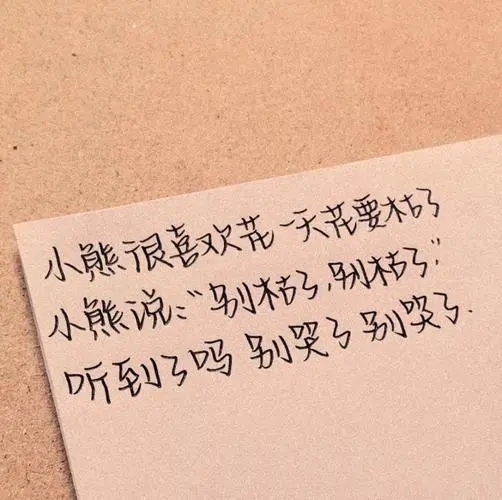 小熊很喜欢花 一天花要枯了
小熊说："别枯了,别枯了"
听到了吗 别哭了 别哭了.